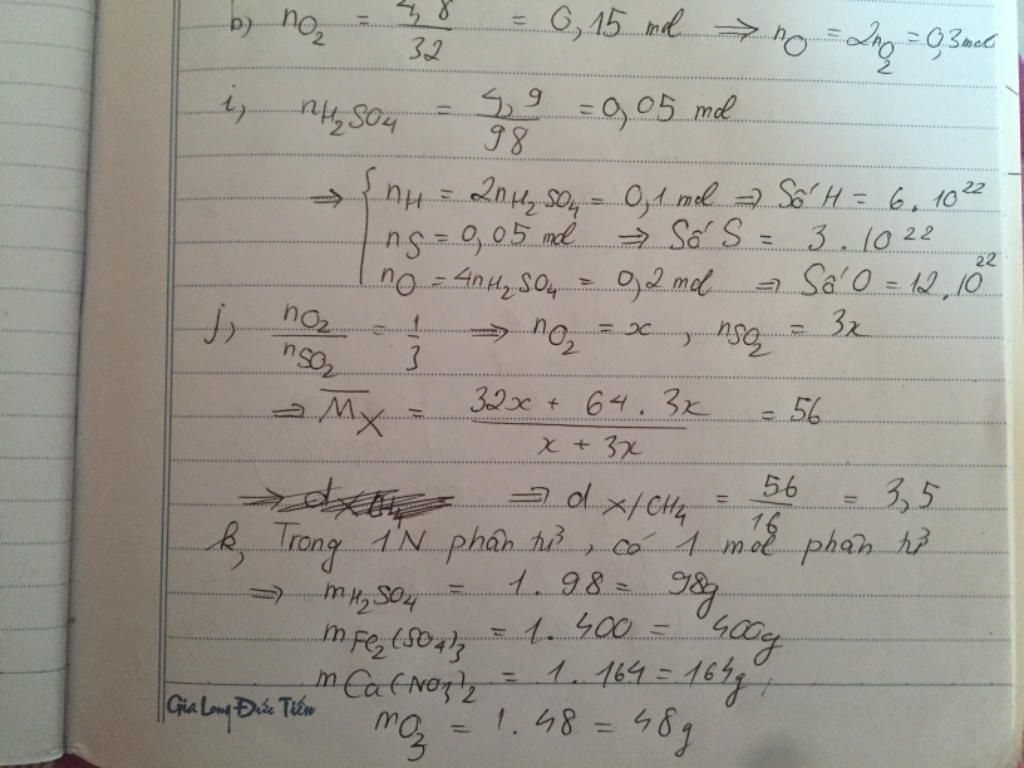 b) nO₂ = 4,8/32 = 0,15 mol ⇒ nO = 2nO₂ = 0,3 mol
i, nH₂SO₄ = 4,9/98 = 0,05 mol
⇒ { nH = 2nH₂SO₄ = 0,1 mol ⇒ Số H = 6.10²²
nS = 0,05 mol ⇒ Số S = 3.10²²
nO = 4nH₂SO₄ = 0,2 mol ⇒ Số O = 12.10²²
j, nO₂/nSO₂ = 1/3 ⇒ nO₂ = x, nSO₂ = 3x
⇒ M̅X = (32x + 64.3x)/(x + 3x) = 56
⇒ d X/CH₄ = 56/16 = 3,5
k, Trong 1N phân tử, có 1 mol phân tử
⇒ mH₂SO₄ = 1.98 = 98g
mFe₂(SO₄)₃ = 1.400 = 400g
mCa(NO₃)₂ = 1.164 = 164g,
mO₃ = 1.48 = 48g
Gia Long Đức Tiến